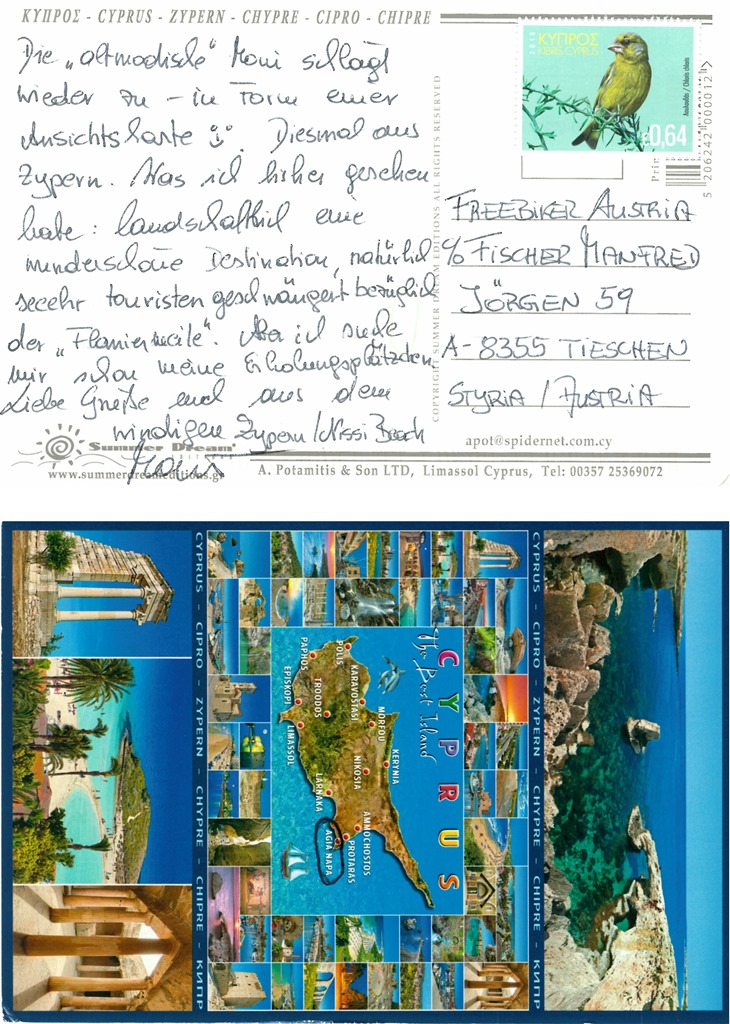 ΚΥΠΡΟΣ - CYPRUS - ZYPERN - CHYPRE - CIPRO - CHIPRE
Die „altmodische" Moni schlägt
wieder zu – in Form einer
Ansichtskarte. Diesmal aus
Zypern. Was ich bisher gesehen
habe: landschaftlich eine
wunderschöne Destination, natürlich
seeehr touristengeschwängert bezüglich
der „Flaniermeile". Aber ich suche
mir schon meine Erholungsplätzchen.
Liebe Grüße aus dem
windigen Zypern/Nissi Beach
COPYRIGHT SUMMER DREAM EDITIONS ALL RIGHTS RESERVED
ΚΥΠΡΟΣ
KIBRIS CYPRUS
€0,64
5 206242 000012
FREEBIKER AUSTRIA
c/o FISCHER MANFRED
JÖRGEN 59
A-8355 TIESCHEN
STYRIA / AUSTRIA
Summer Dream
www.summerdreameditions.gr
apot@spidernet.com.cy
A. Potamitis & Son LTD, Limassol Cyprus, Tel: 00357 25369072
CYPRUS - CIPRO - ZYPERN - CHYPRE - CHIPRE - КИПР
CYPRUS
The Best Island
POLIS
PAPHOS
KARAVOSTASI
TROODOS
EPISKOPI
LIMASSOL
MORFOU
KERYNIA
NIKOSIA
LARNAKA
AMMOCHOSTOS
PROTARAS
AGIA NAPA
CYPRUS - CIPRO - ZYPERN - CHYPRE - CHIPRE - КИПР